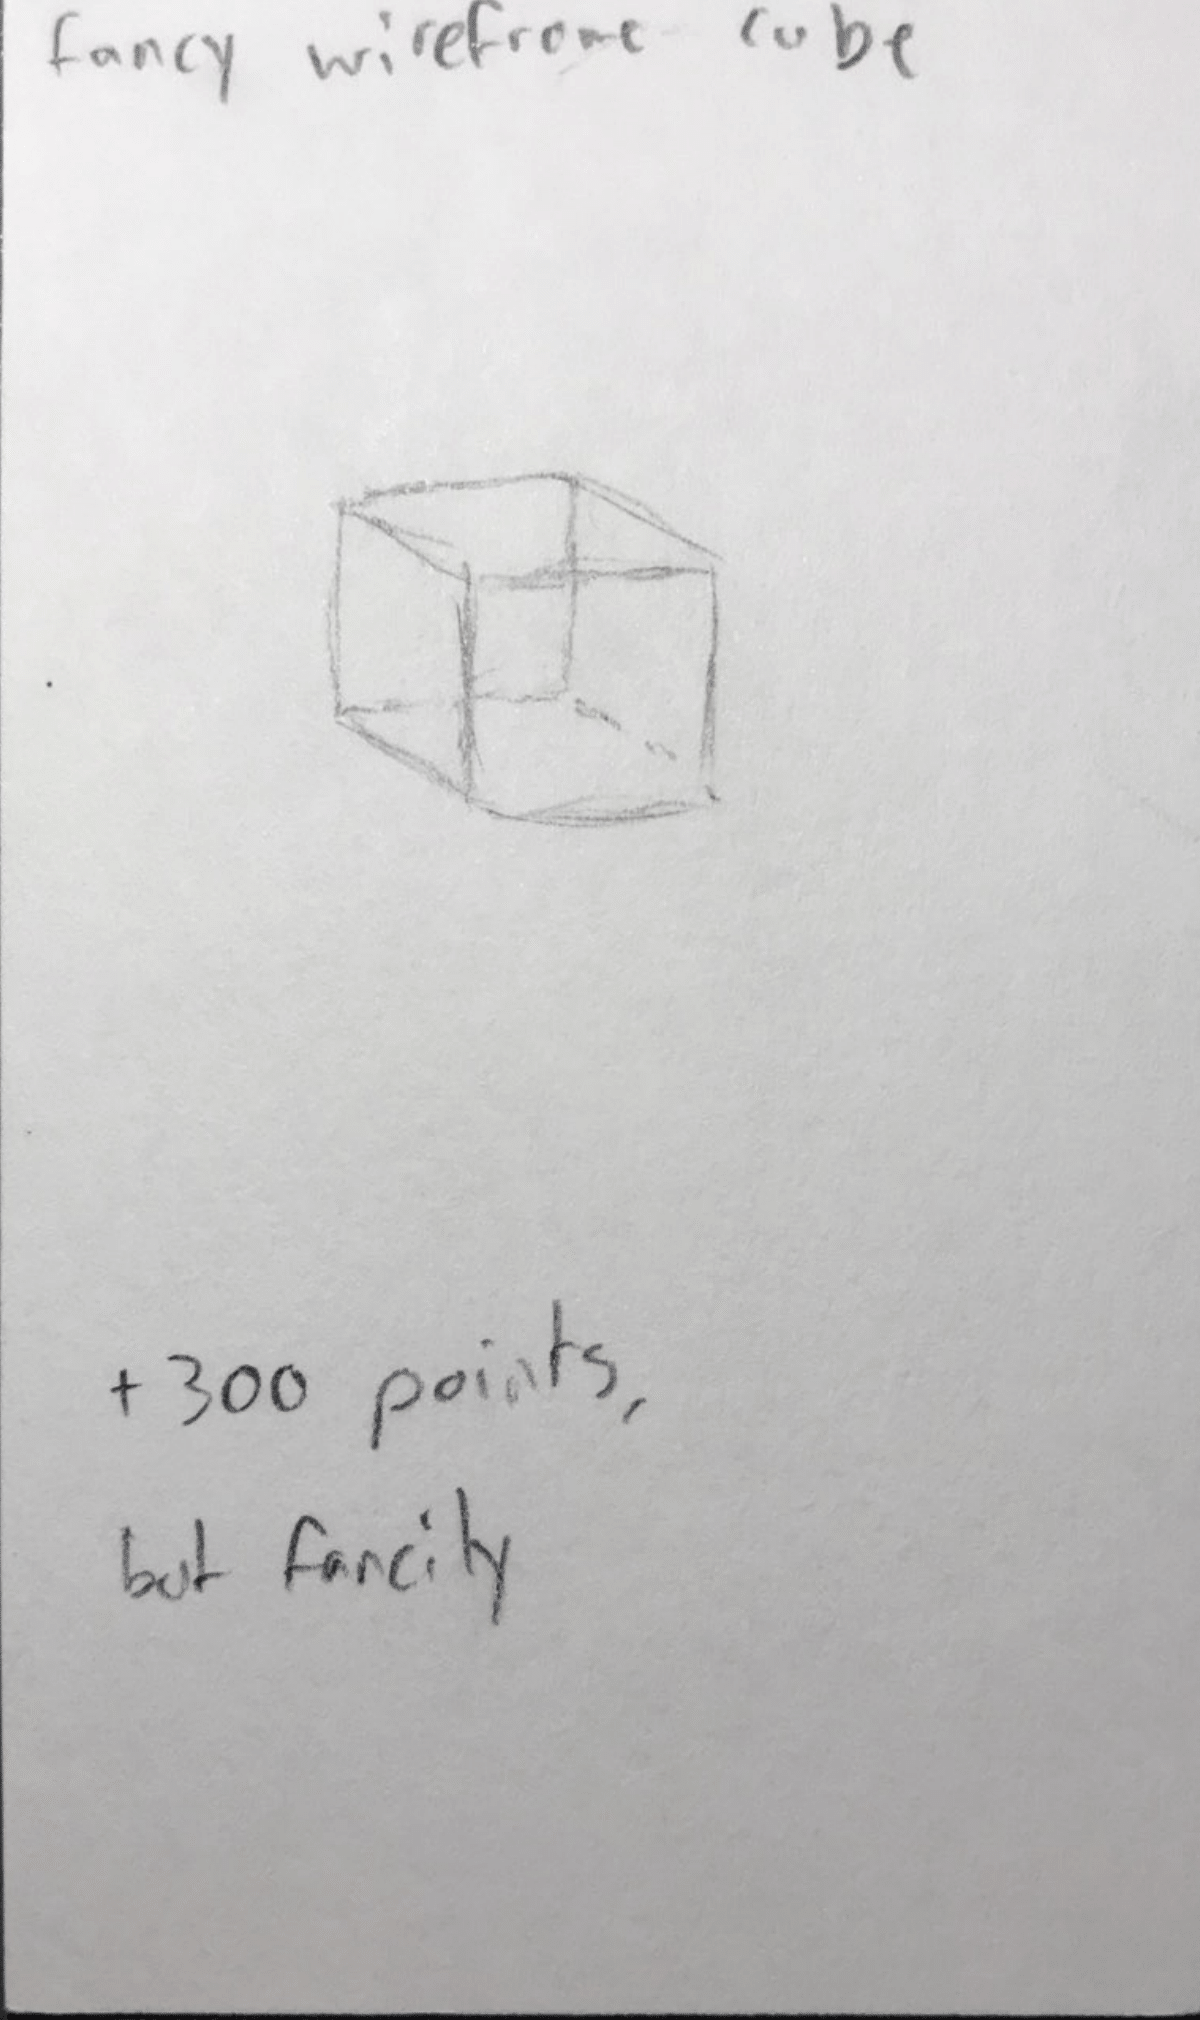 fancy wireframe cube
+300 points,
but fancily